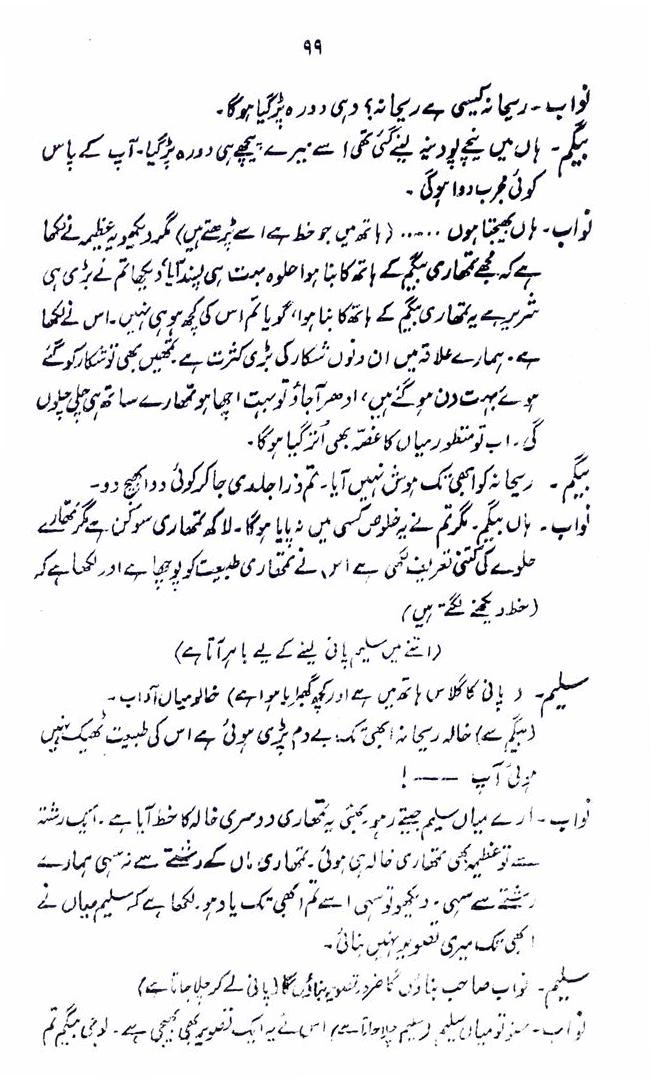 ۹۹
نواب۔ ریحانہ کیسی ہے ریحانہ؟ وہی دورہ پڑ گیا ہوگا۔
بیگم۔ ہاں میں نیچے پودینہ لینے گئی تھی اسے میرے پیچھے ہی دورہ پڑ گیا۔ آپ کے پاس
کوئی مجرب دوا ہوگی۔
نواب۔ ہاں بھیجتا ہوں ...... (ہاتھ میں جو خط ہے اسے پڑھتے ہیں) مگر دیکھو یہ عظیمہ نے لکھا
ہے کہ مجھے تمھاری بیگم کے ہاتھ کا بنا ہوا حلوہ بہت ہی پسند آیا، دیکھا تم نے بڑی ہی
شریر ہے یہ تمھاری بیگم کے ہاتھ کا بنا ہوا، گویا تم اس کی کچھ ہو ہی نہیں۔ اس نے لکھا
ہے۔ ہمارے علاقہ میں ان دنوں شکار کی بڑی کثرت ہے تمھیں بھی تو شکار کو گئے
ہوئے بہت دن ہو گئے ہیں، ادھر آ جاؤ تو بہت اچھا ہو تمھارے ساتھ ہی چلی چلوں
گی۔ اب تو منظور میاں کا غصّہ بھی اُتر گیا ہوگا۔
بیگم۔ ریحانہ کو ابھی تک ہوش نہیں آیا۔ تم ذرا جلدی جا کر کوئی دوا بھیج دو۔
نواب۔ ہاں بیگم۔ مگر تم نے یہ خلوص کسی میں نہ پایا ہوگا۔ لاکھ تمھاری سوکن ہے مگر تمھارے
حلوے کی کتنی تعریف لکھی ہے اس نے تمھاری طبیعت کو پوچھا ہے اور لکھا ہے کہ
(خط دیکھنے لگتے ہیں)
(اتنے میں سلیم پانی لینے کے لیے باہر آتا ہے)
سلیم۔ (پانی کا گلاس ہاتھ میں ہے اور کچھ گھبرایا ہوا ہے) خالو میاں آداب۔
(بیگم سے) خالہ ریحانہ ابھی تک بے دم پڑی ہوئی ہے اس کی طبیعت ٹھیک نہیں
ہوئی آپ ——!
نواب۔ ارے میاں سلیم جیتے رہو۔ بھئی یہ تمھاری دوسری خالہ کا خط آیا ہے۔ ایک رشتہ
سے تو عظیمہ بھی تمھاری خالہ ہی ہوئی۔ تمھاری ماں کے رشتے سے نہ سہی ہمارے
رشتے سے سہی۔ دیکھو تو سہی اسے تم ابھی تک یاد ہو۔ لکھا ہے کہ سلیم میاں نے
ابھی تک میری تصویر نہیں بنائی۔
سلیم۔ نواب صاحب بناؤں گا ضرور تصویر بناؤں گا (پانی لے کر چلا جاتا ہے)
نواب۔ سنو تو میاں سلیم (سلیم چلا جاتا ہے) اس نے یہ ایک تصویر بھی بھیجی ہے۔ لو بھئی بیگم تم